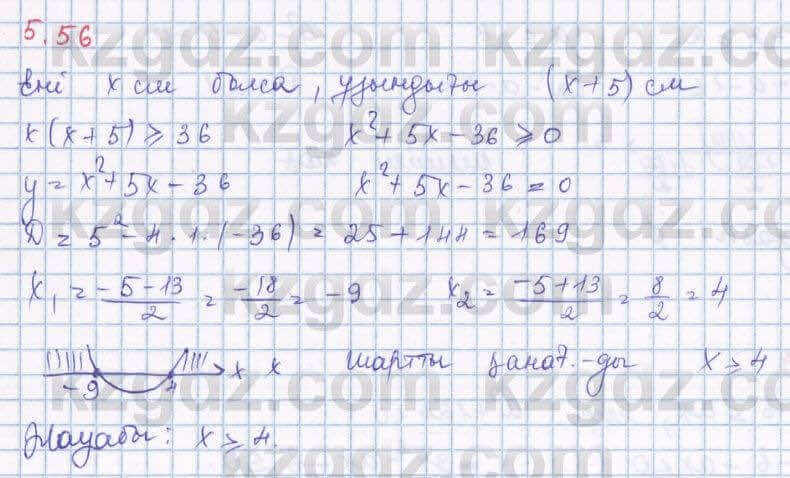 5.56
Ені x см болса, ұзындығы (x+5) см
x(x+5) ⩾ 36 x²+5x−36 ⩾ 0
y = x²+5x−36 x²+5x−36 = 0
D = 5²−4·1·(−36) = 25+144 = 169
x₁ = (−5−13)/2 = −18/2 = −9 x₂ = (−5+13)/2 = 8/2 = 4
−9 4 x x шартты қанағ.-ды x ⩾ 4
Жауабы: x ⩾ 4.
kzgdz.com